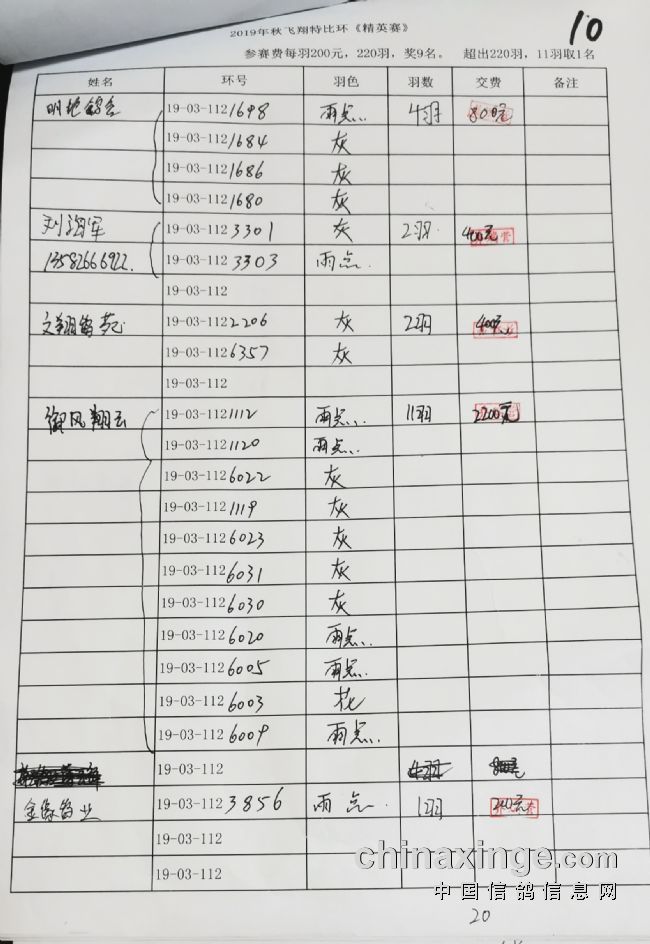 2019年秋飞翔特比环《精英赛》
10
参赛费每羽200元，220羽，奖9名。 超出220羽，11羽取1名
姓名 环号 羽色 羽数 交费 备注
19-03-1121698 雨点 4羽 800元
19-03-1121684 灰
19-03-1121686 灰
19-03-1121680 灰
刘海军 19-03-1123301 灰 2羽 400元
13582666922 19-03-1123303 雨点
19-03-112
文翔鸽苑 19-03-1122206 灰 2羽 400元
19-03-1126357 灰
19-03-112
御风翔云 19-03-1121112 雨点 11羽 2200元
19-03-1121120 雨点
19-03-1126022 灰
19-03-1121119 灰
19-03-1126023 灰
19-03-1126031 灰
19-03-1126030 灰
19-03-1126020 雨点
19-03-1126005 雨点
19-03-1126003 花
19-03-1126009 雨点
19-03-112
金缘鸽业 19-03-1123856 雨点 1羽 200元
19-03-112
19-03-112
chinaxinge.com
中国信鸽信息网
20